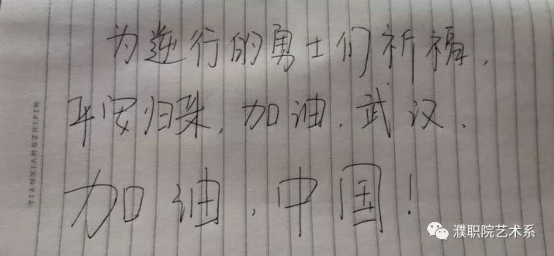 为逆行的勇士们祈福,
平安归 加油.武汉.
加油.中国!
TIANXIANGZHIPIN
濮职院艺术系